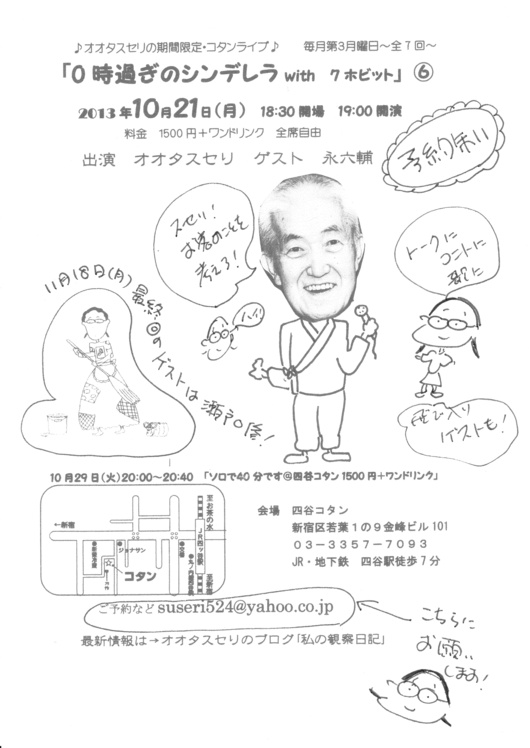 ♪オオタスセリの期間限定・コタンライブ♪　毎月第3月曜日～全7回～
「0時過ぎのシンデレラ with 7ホビット」⑥
2013年10月21日（月）　18:30開場　19:00開演
料金　1500円＋ワンドリンク　全席自由
出演　オオタスセリ　ゲスト　永六輔
予約制
スセリ！
お客のことを
考えろ！
ハイ！
トークに
コントに
歌に
11月18日（月）
最終回のゲストは瀬戸口修！
飛び入り
ゲストも！
10月29日（火）20:00～20:40　「ソロで40分です＠四谷コタン1500円＋ワンドリンク」
←新宿
至お茶の水
JR四ッ谷駅
ジョナサン
コタン
至新宿
会場　四谷コタン
新宿区若葉1の9金峰ビル101
03－3357－7093
JR・地下鉄　四谷駅徒歩7分
ご予約など suseri524@yahoo.co.jp
こちらに
お願い
します！
最新情報は→オオタスセリのブログ「私の観察日記」